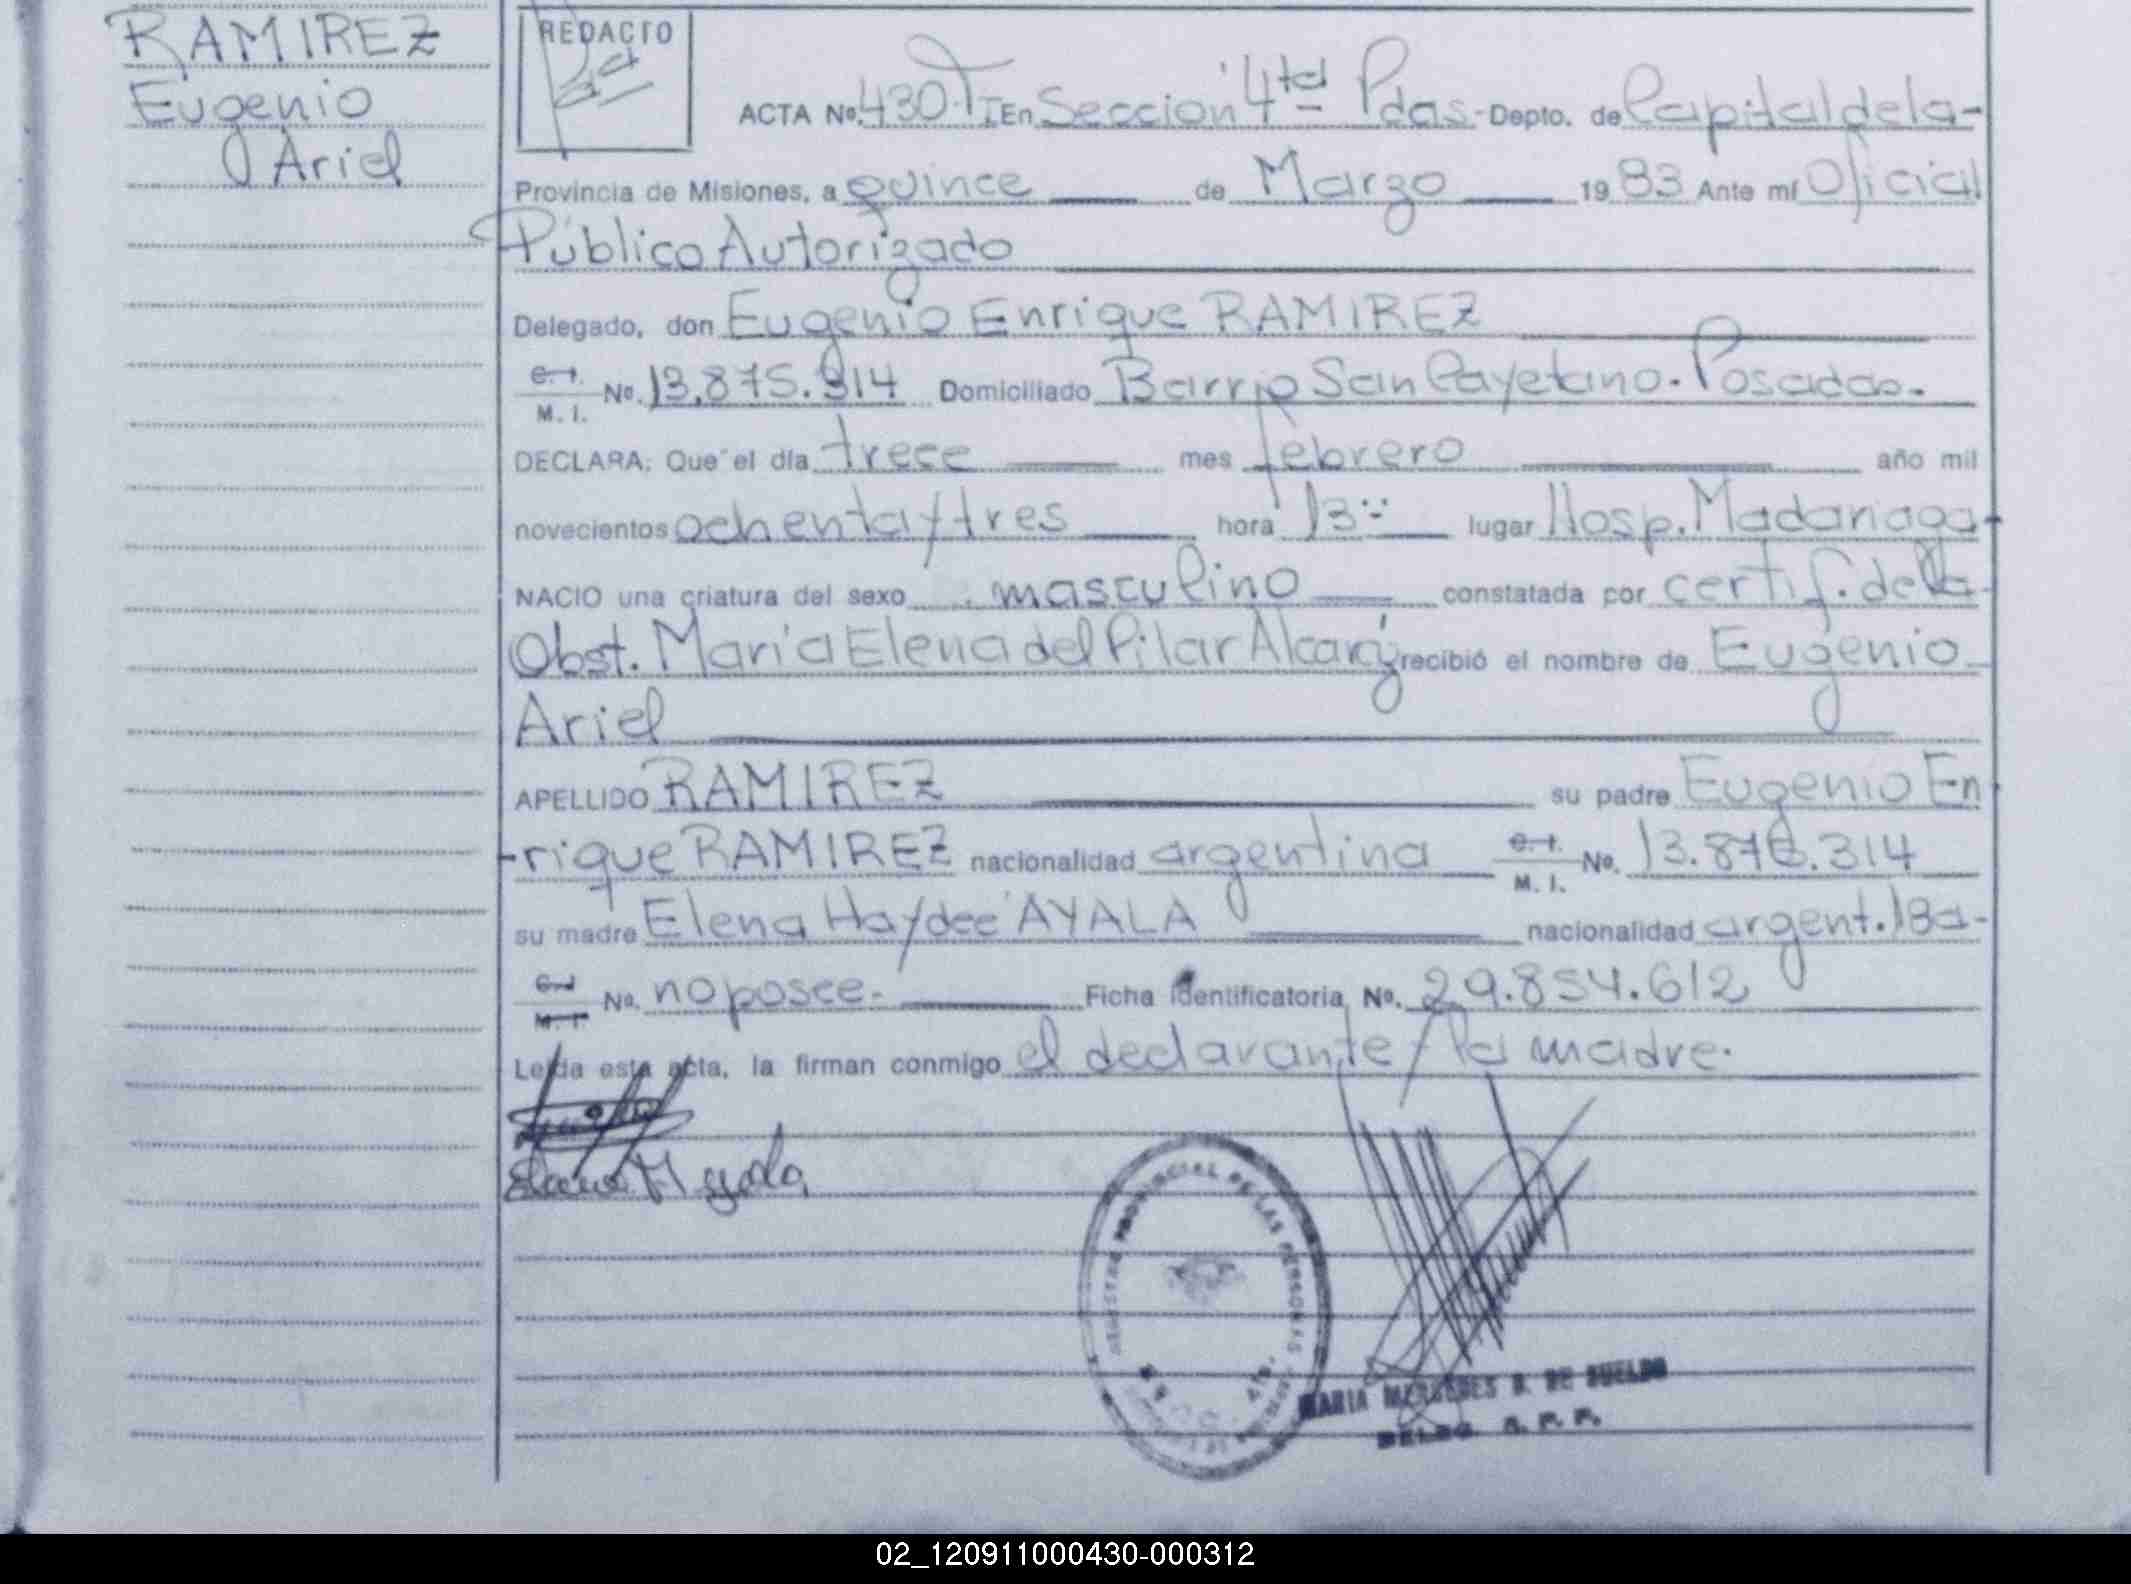 RAMIREZ
Eugenio
Ariel
REDACTO
ACTA Nº 430 T I En Sección 4ta Pdas - Depto. de Capital de la -
Provincia de Misiones, a quince de Marzo 1983 Ante mí Oficial
Público Autorizado
Delegado, don Eugenio Enrique RAMIREZ
C. I.
M. I. Nº. 13.875.314 Domiciliado Barrio San Cayetano. Posadas.
DECLARA: Que el día trece mes febrero año mil
novecientos ochenta y tres hora 13 lugar Hosp. Madariaga -
NACIO una criatura del sexo masculino constatada por certif. de la
Obst. María Elena del Pilar Alcaráz recibió el nombre de Eugenio
Ariel
APELLIDO RAMIREZ su padre Eugenio En
-rique RAMIREZ nacionalidad argentina C. I.
M. I. Nº. 13.875.314
su madre Elena Haydee AYALA nacionalidad argent. 18a -
C. I.
M. I. Nº. no posee. Ficha identificatoria Nº. 29.854.612
Leída esta acta, la firman conmigo el declarante y la madre.
Elena H Ayala
REGISTRO PROVINCIAL DE LAS PERSONAS
MARIA MERCEDES B. DE SUELDO
DELEG. R. P. P.
02_120911000430-000312